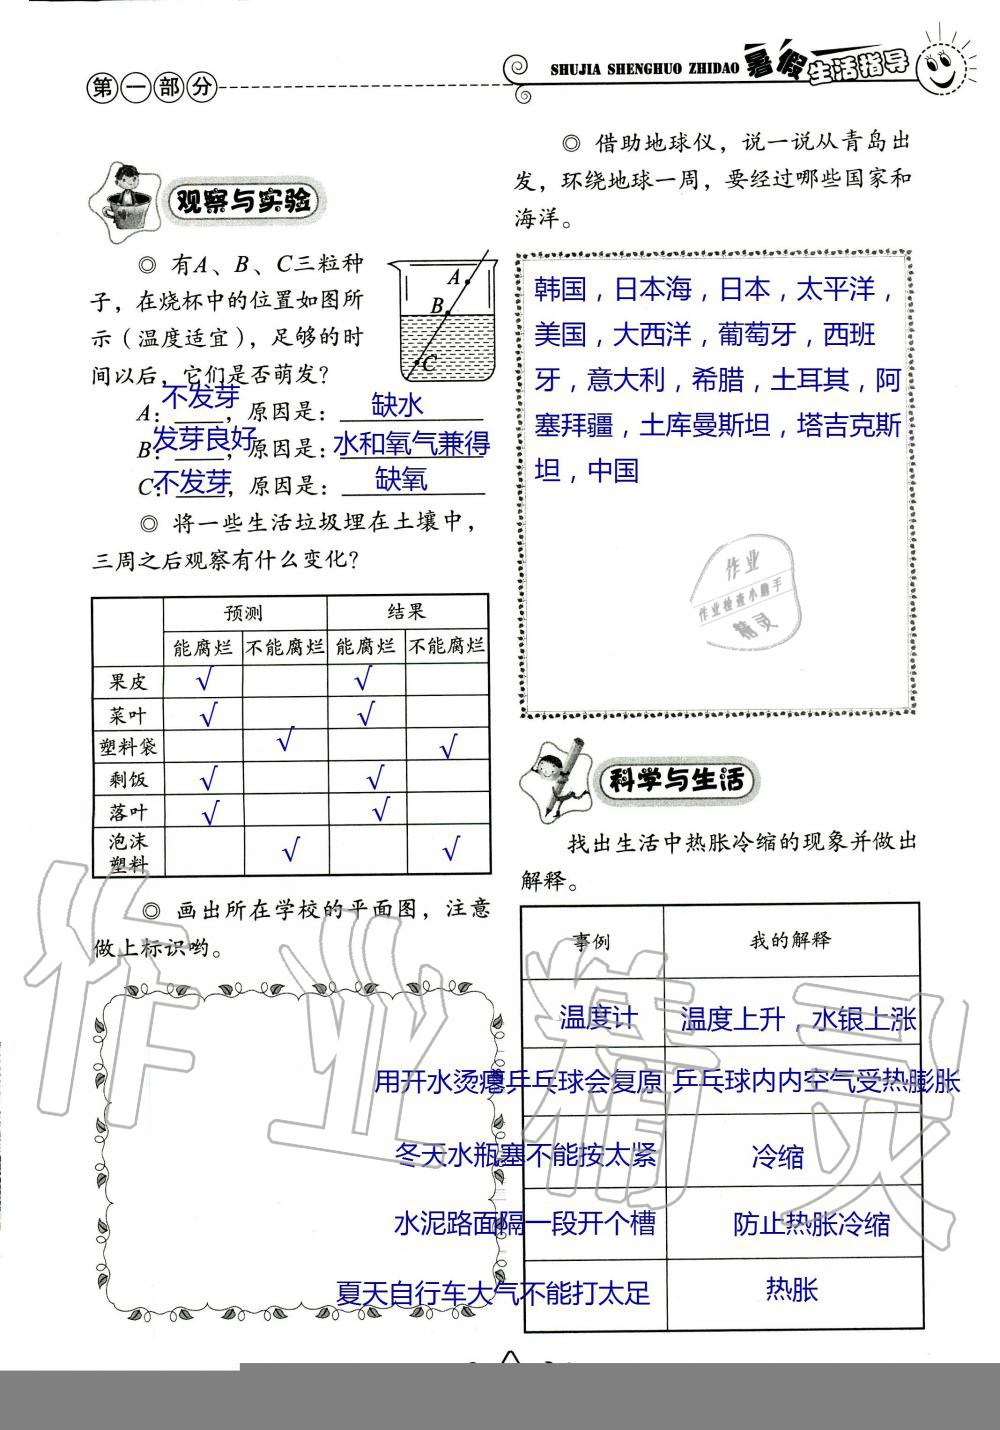 第一部分
SHUJIA SHENGHUO ZHIDAO 暑假生活指导
观察与实验
◎ 有A、B、C三粒种
子，在烧杯中的位置如图所
示（温度适宜），足够的时
间以后，它们是否萌发？
A
B
C
A：不发芽，原因是：缺水
B：发芽良好，原因是：水和氧气兼得
C：不发芽，原因是：缺氧
◎ 将一些生活垃圾埋在土壤中，
三周之后观察有什么变化？
预测 结果
能腐烂 不能腐烂 能腐烂 不能腐烂
果皮 √ √
菜叶 √ √
塑料袋 √ √
剩饭 √ √
落叶 √ √
泡沫
塑料 √ √
◎ 画出所在学校的平面图，注意
做上标识哟。
◎ 借助地球仪，说一说从青岛出
发，环绕地球一周，要经过哪些国家和
海洋。
韩国，日本海，日本，太平洋，
美国，大西洋，葡萄牙，西班
牙，意大利，希腊，土耳其，阿
塞拜疆，土库曼斯坦，塔吉克斯
坦，中国
作业
作业检查小助手
精灵
科学与生活
找出生活中热胀冷缩的现象并做出
解释。
事例 我的解释
温度计 温度上升，水银上涨
用开水烫瘪乒乓球会复原 乒乓球内内空气受热膨胀
冬天水瓶塞不能按太紧 冷缩
水泥路面隔一段开个槽 防止热胀冷缩
夏天自行车大气不能打太足 热胀
作业精灵